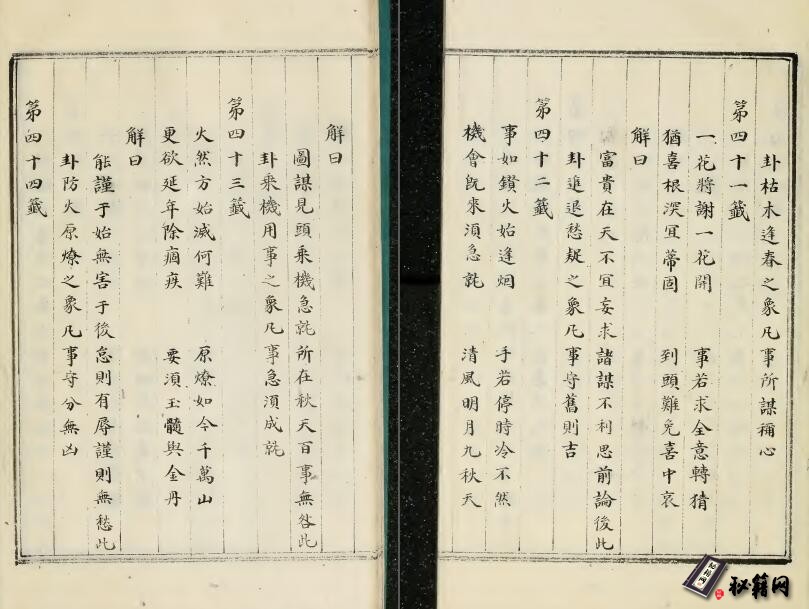 卦枯木逢春之象凡事所謀稱心
第四十一籤
一花將謝一花開　事若求全意轉猜
猶喜根深冝蒂固　到頭難免喜中哀
解曰
富貴在天不冝妄求諸謀不利思前論後此
卦進退愁疑之象凡事守舊則吉
第四十二籤
事如鑚火始逢烟　手若停時冷不然
機會既來須急就　清風明月九秋天
解曰
圖謀見頭乘機急就所在秋天百事無咎此
卦乘機用事之象凡事急須成就
第四十三籤
火然方始滅何難　原燎如今千萬山
更欲延年除痼疾　要須玉髓與金丹
解曰
能謹于始無害于後怠則有辱謹則無愁此
卦防火原燎之象凡事守分無凶
第四十四籤
秘籍网